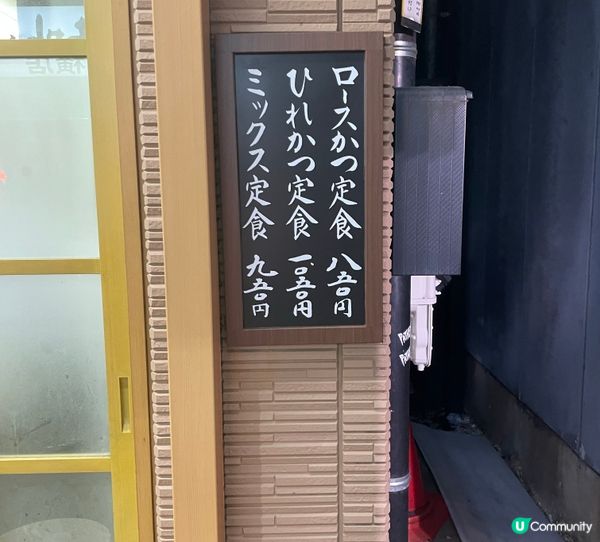 ロースかつ定食 八五〇円
ひれかつ定食 一〇五〇円
ミックス定食 九五〇円
U Community